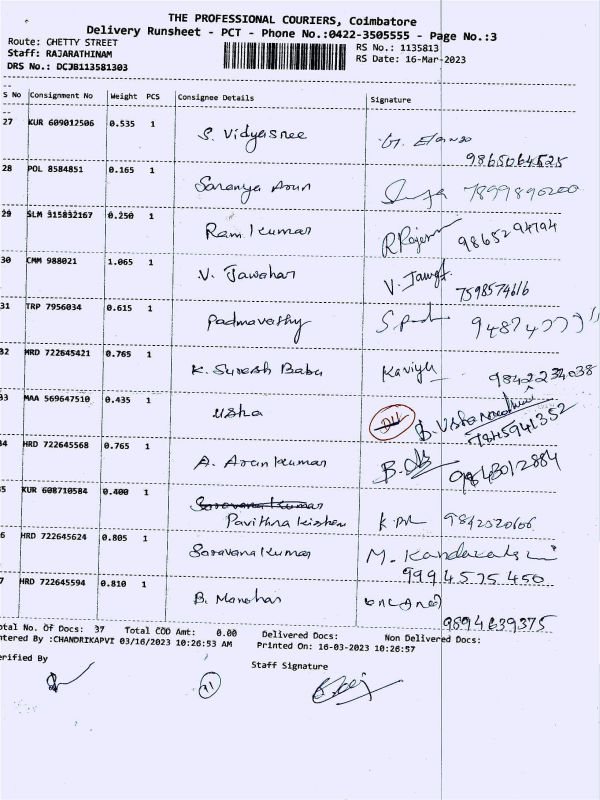 THE PROFESSIONAL COURIERS, Coimbatore
Delivery Runsheet - PCT - Phone No.:0422-3505555 - Page No.:3
Route: CHETTY STREET
RS No.: 1135813
Staff: RAJARATHINAM
RS Date: 16-Mar-2023
DRS No.: DCJB113581303
S No Consignment No Weight PCS Consignee Details Signature
27 KUR 609012506 0.535 1 S. Vidyasree
9865064525
28 POL 8584851 0.165 1 Saranya Arun 7899890200
29 SLM 315832167 0.250 1 Ram Kumar 9865294794
30 CMM 988021 1.065 1 V. Jawahar
7598574616
31 TRP 7956034 0.615 1 Padmavathy
32 HRD 722645421 0.765 1 K. Suresh Babu Kaviya 9842234038
33 MAA 569647510 0.435 1 Usha
7845941352
34 HRD 722645568 0.765 1 A. Arunkumar 9843012884
35 KUR 608710584 0.400 1 Saravana Kumar
Pavithra Kishen 9842520606
36 HRD 722645624 0.805 1 Saravana Kumar M.
9994575450
37 HRD 722645594 0.810 1 B. Manohar
9894639375
Total No. Of Docs: 37 Total COD Amt: 0.00 Delivered Docs: Non Delivered Docs:
Entered By :CHANDRIKAPVI 03/16/2023 10:26:53 AM Printed On: 16-03-2023 10:26:57
Verified By
Staff Signature